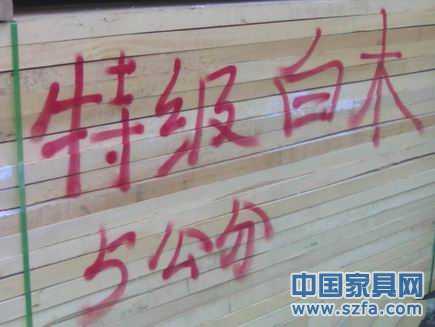 特级白木
5公分
中国家具网
www.szfa.com